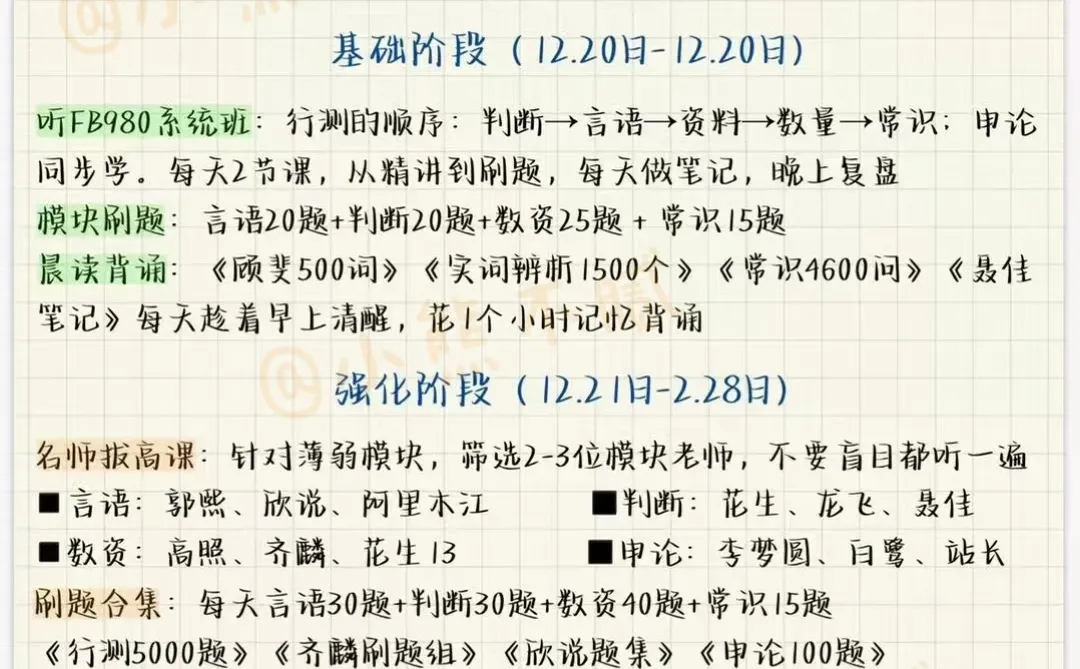 基础阶段（12.20日-12.20日）
听FB980系统班：行测的顺序：判断→言语→资料→数量→常识；申论
同步学。每天2节课，从精讲到刷题，每天做笔记，晚上复盘
模块刷题：言语20题+判断20题+数资25题 + 常识15题
晨读背诵：《顾斐500词》《实词辨析1500个》《常识4600问》《聂佳
笔记》每天趁着早上清醒，花1个小时记忆背诵
强化阶段（12.21日-2.28日）
名师拔高课：针对薄弱模块，筛选2-3位模块老师，不要盲目都听一遍
■言语：郭熙、欣说、阿里木江 ■判断：花生、龙飞、聂佳
■数资：高照、齐麟、花生13 ■申论：李梦圆、白鹭、站长
刷题合集：每天言语30题+判断30题+数资40题+常识15题
《行测5000题》《齐麟刷题组》《欣说题集》《申论100题》